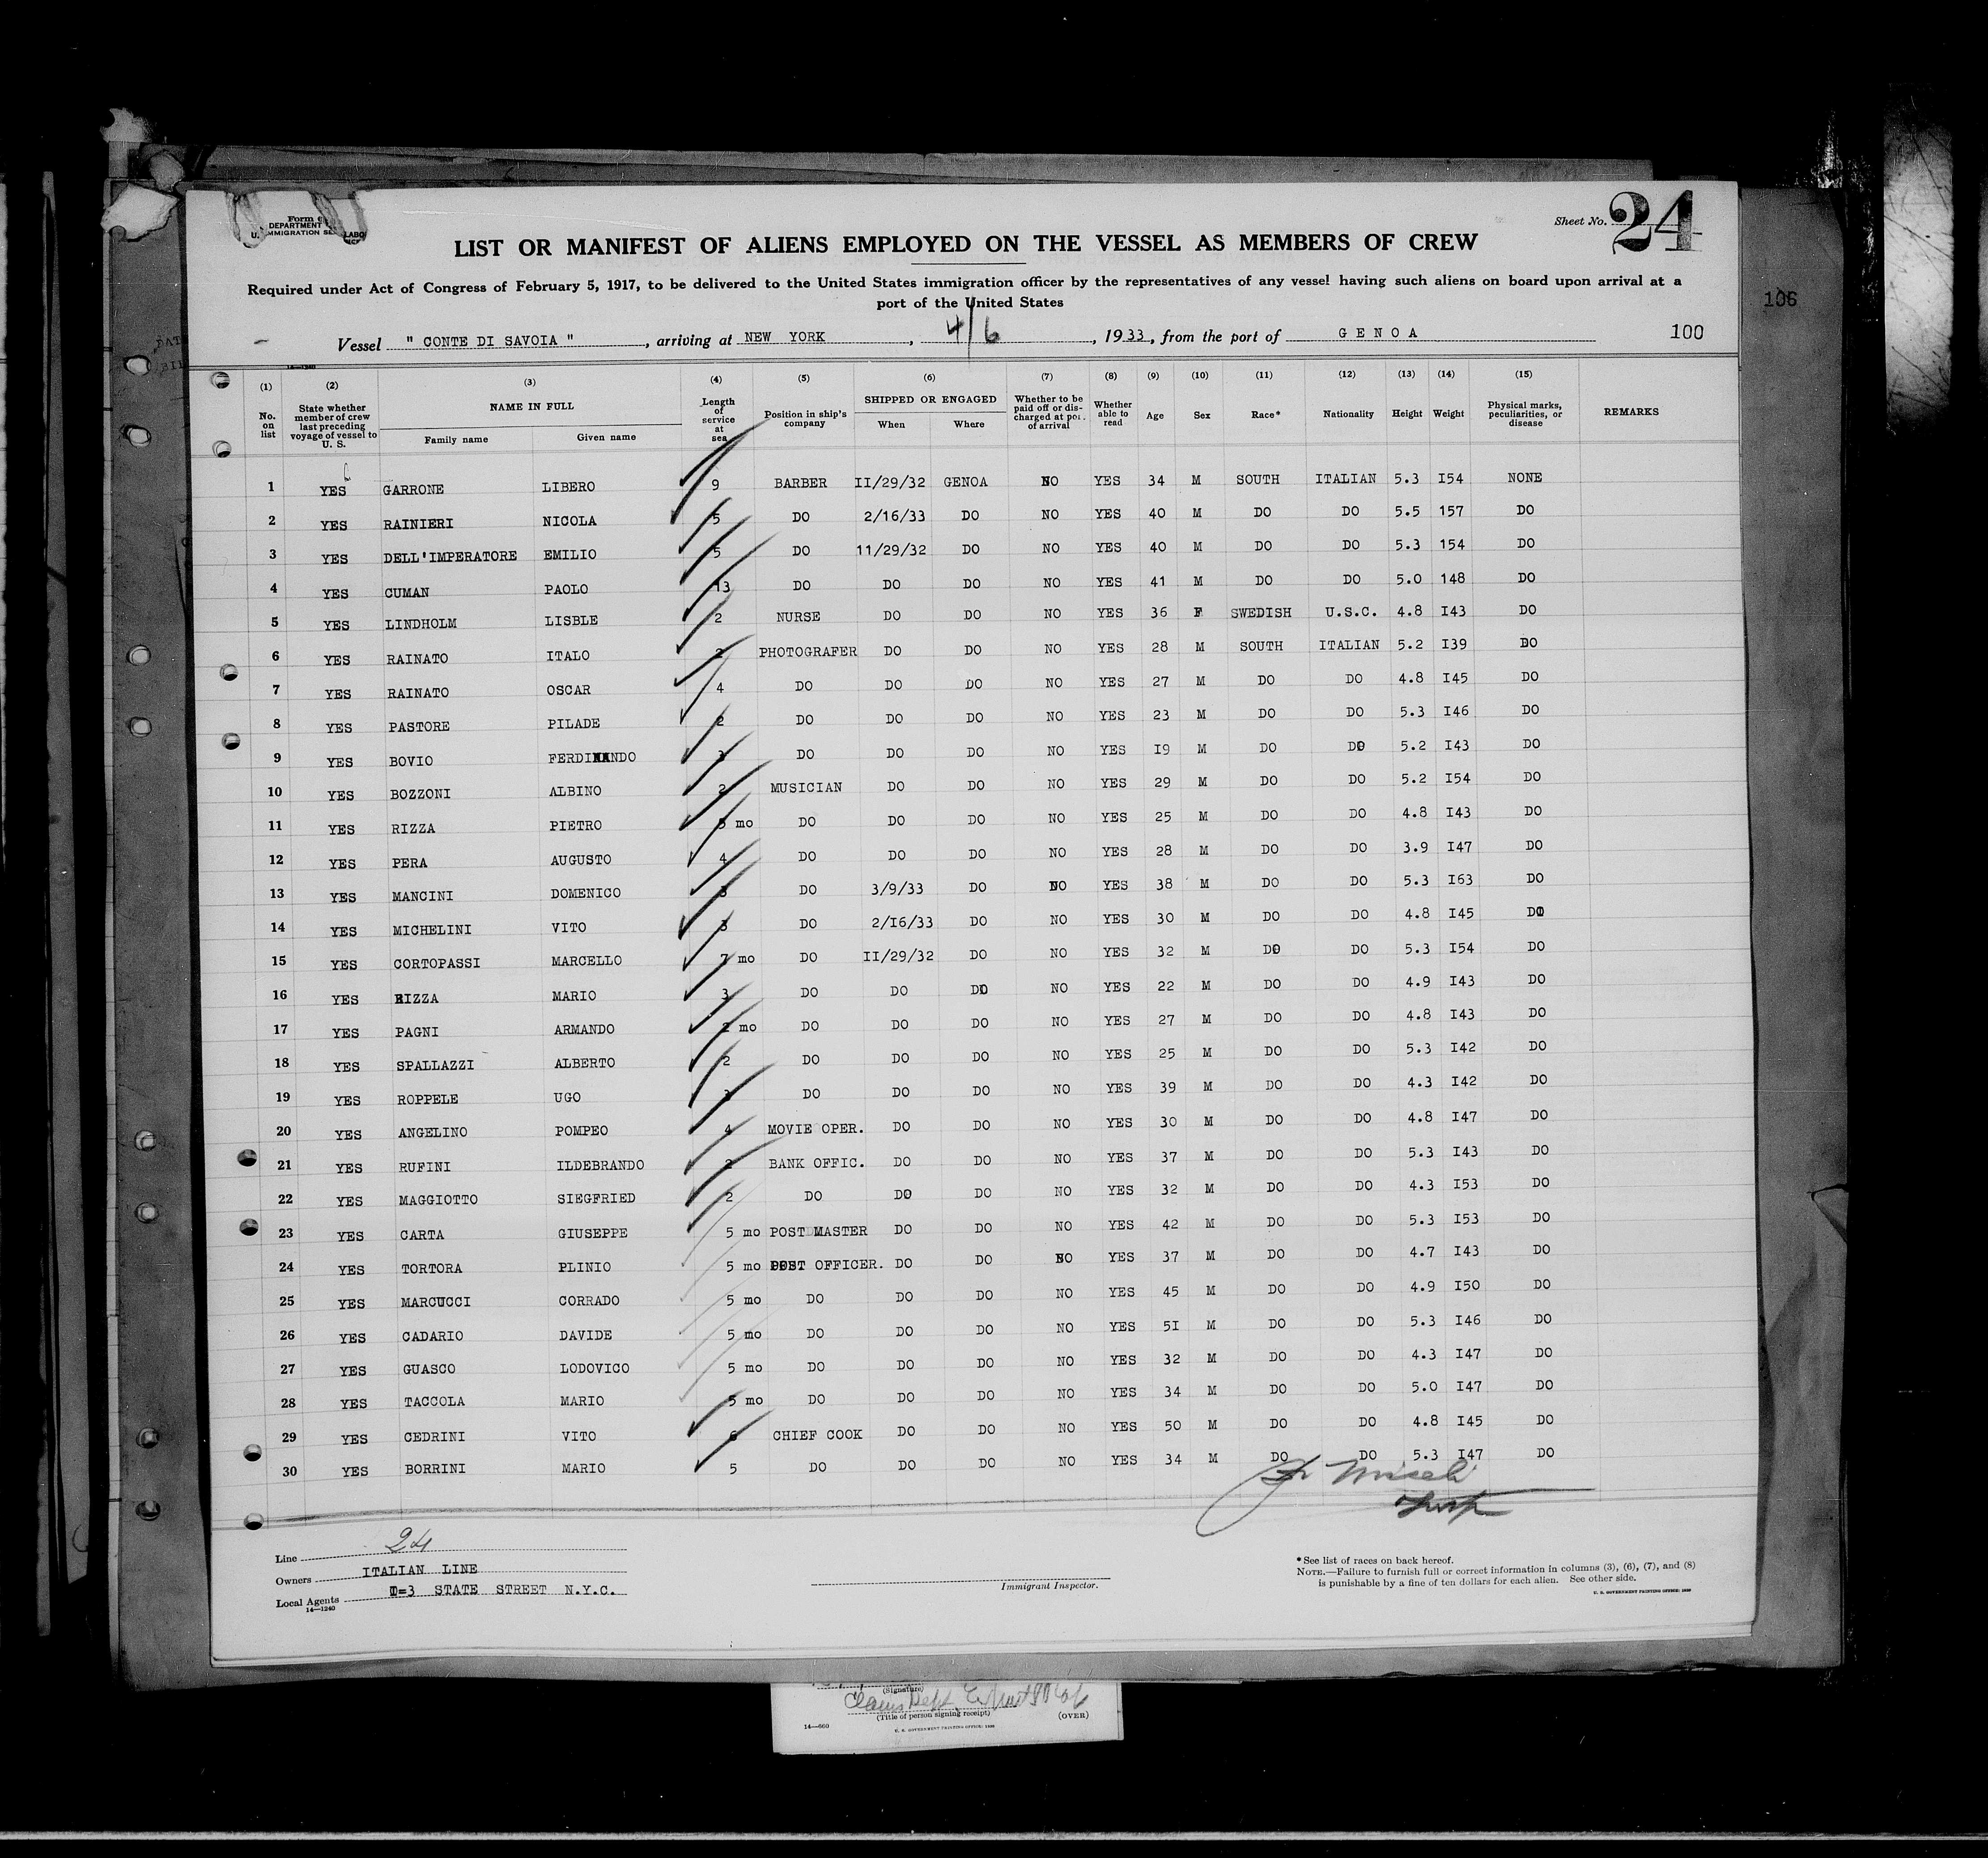 Form
DEPARTMENT LABO
U. IMMIGRATION SE
Sheet No. 24
LIST OR MANIFEST OF ALIENS EMPLOYED ON THE VESSEL AS MEMBERS OF CREW
Required under Act of Congress of February 5, 1917, to be delivered to the United States immigration officer by the representatives of any vessel having such aliens on board upon arrival at a
port of the United States
106
Vessel " CONTE DI SAVOIA ", arriving at NEW YORK, 4/6, 1933, from the port of GENOA 100
(1) (2) (3) (4) (5) (6) (7) (8) (9) (10) (11) (12) (13) (14) (15)
No. on list State whether member of crew last preceding voyage of vessel to U. S. NAME IN FULL Family name Given name Length of service at sea Position in ship's company SHIPPED OR ENGAGED When Where Whether to be paid off or discharged at port of arrival Whether able to read Age Sex Race* Nationality Height Weight Physical marks, peculiarities, or disease REMARKS
1 YES GARRONE LIBERO 9 BARBER II/29/32 GENOA NO YES 34 M SOUTH ITALIAN 5.3 I54 NONE
2 YES RAINIERI NICOLA 5 DO 2/16/33 DO NO YES 40 M DO DO 5.5 157 DO
3 YES DELL'IMPERATORE EMILIO 5 DO 11/29/32 DO NO YES 40 M DO DO 5.3 154 DO
4 YES CUMAN PAOLO 13 DO DO DO NO YES 41 M DO DO 5.0 148 DO
5 YES LINDHOLM LISBLE 2 NURSE DO DO NO YES 36 F SWEDISH U.S.C. 4.8 I43 DO
6 YES RAINATO ITALO 2 PHOTOGRAFER DO DO NO YES 28 M SOUTH ITALIAN 5.2 I39 DO
7 YES RAINATO OSCAR 4 DO DO DO NO YES 27 M DO DO 4.8 I45 DO
8 YES PASTORE PILADE 2 DO DO DO NO YES 23 M DO DO 5.3 I46 DO
9 YES BOVIO FERDINANDO 3 DO DO DO NO YES I9 M DO DO 5.2 I43 DO
10 YES BOZZONI ALBINO 2 MUSICIAN DO DO NO YES 29 M DO DO 5.2 I54 DO
11 YES RIZZA PIETRO 5 mo DO DO DO NO YES 25 M DO DO 4.8 I43 DO
12 YES PERA AUGUSTO 4 DO DO DO NO YES 28 M DO DO 3.9 I47 DO
13 YES MANCINI DOMENICO 3 DO 3/9/33 DO NO YES 38 M DO DO 5.3 I63 DO
14 YES MICHELINI VITO 3 DO 2/I6/33 DO NO YES 30 M DO DO 4.8 I45 DO
15 YES CORTOPASSI MARCELLO 7 mo DO II/29/32 DO NO YES 32 M DO DO 5.3 I54 DO
16 YES RIZZA MARIO 3 DO DO DO NO YES 22 M DO DO 4.9 I43 DO
17 YES PAGNI ARMANDO 2 mo DO DO DO NO YES 27 M DO DO 4.8 I43 DO
18 YES SPALLAZZI ALBERTO 2 DO DO DO NO YES 25 M DO DO 5.3 I42 DO
19 YES ROPPELE UGO DO DO DO NO YES 39 M DO DO 4.3 I42 DO
20 YES ANGELINO POMPEO 4 MOVIE OPER. DO DO NO YES 30 M DO DO 4.8 I47 DO
21 YES RUFINI ILDEBRANDO 2 BANK OFFIC. DO DO NO YES 37 M DO DO 5.3 I43 DO
22 YES MAGGIOTTO SIEGFRIED 2 DO DO DO NO YES 32 M DO DO 4.3 I53 DO
23 YES CARTA GIUSEPPE 5 mo POST MASTER DO DO NO YES 42 M DO DO 5.3 I53 DO
24 YES TORTORA PLINIO 5 mo POST OFFICER. DO DO NO YES 37 M DO DO 4.7 I43 DO
25 YES MARCUCCI CORRADO 5 mo DO DO DO NO YES 45 M DO DO 4.9 I50 DO
26 YES CADARIO DAVIDE 5 mo DO DO DO NO YES 5I M DO DO 5.3 I46 DO
27 YES GUASCO LODOVICO 5 mo DO DO DO NO YES 32 M DO DO 4.3 I47 DO
28 YES TACCOLA MARIO 5 mo DO DO DO NO YES 34 M DO DO 5.0 I47 DO
29 YES CEDRINI VITO 6 CHIEF COOK DO DO NO YES 50 M DO DO 4.8 I45 DO
30 YES BORRINI MARIO 5 DO DO DO NO YES 34 M DO DO 5.3 I47 DO
Line 24
Owners ITALIAN LINE
Local Agents I=3 STATE STREET N.Y.C.
14—1240
Immigrant Inspector.
*See list of races on back hereof.
NOTE.—Failure to furnish full or correct information in columns (3), (6), (7), and (8)
is punishable by a fine of ten dollars for each alien. See other side.
U. S. GOVERNMENT PRINTING OFFICE: 1929
(Signature)
Claims Dept.
(Title of person signing receipt)
14—660
(OVER)
U. S. GOVERNMENT PRINTING OFFICE: 1930